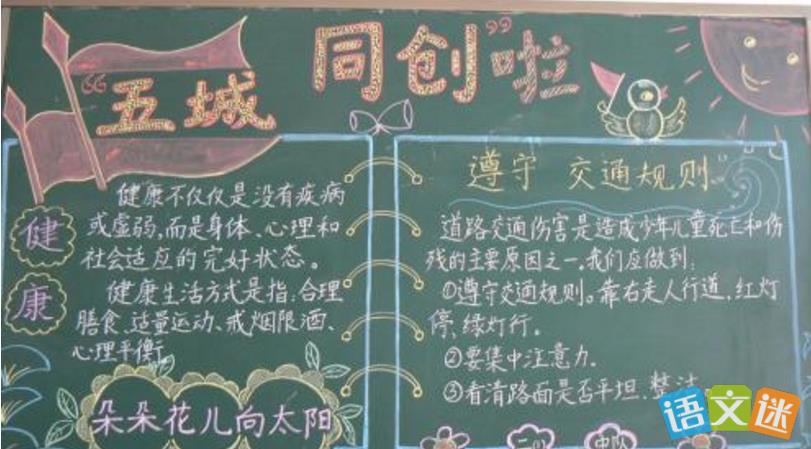 “五城同创”啦
健康
健康不仅仅是没有疾病
或虚弱,而是身体、心理和
社会适应的完好状态。
健康生活方式是指:合理
膳食、适量运动、戒烟限酒、
心理平衡
朵朵花儿向太阳
遵守 交通规则
道路交通伤害是造成少年儿童死亡和伤
残的主要原因之一。我们应做到:
①遵守交通规则。靠右走人行道,红灯
停,绿灯行。
②要集中注意力.
③看清路面是否平坦、整洁
中队
语文迷